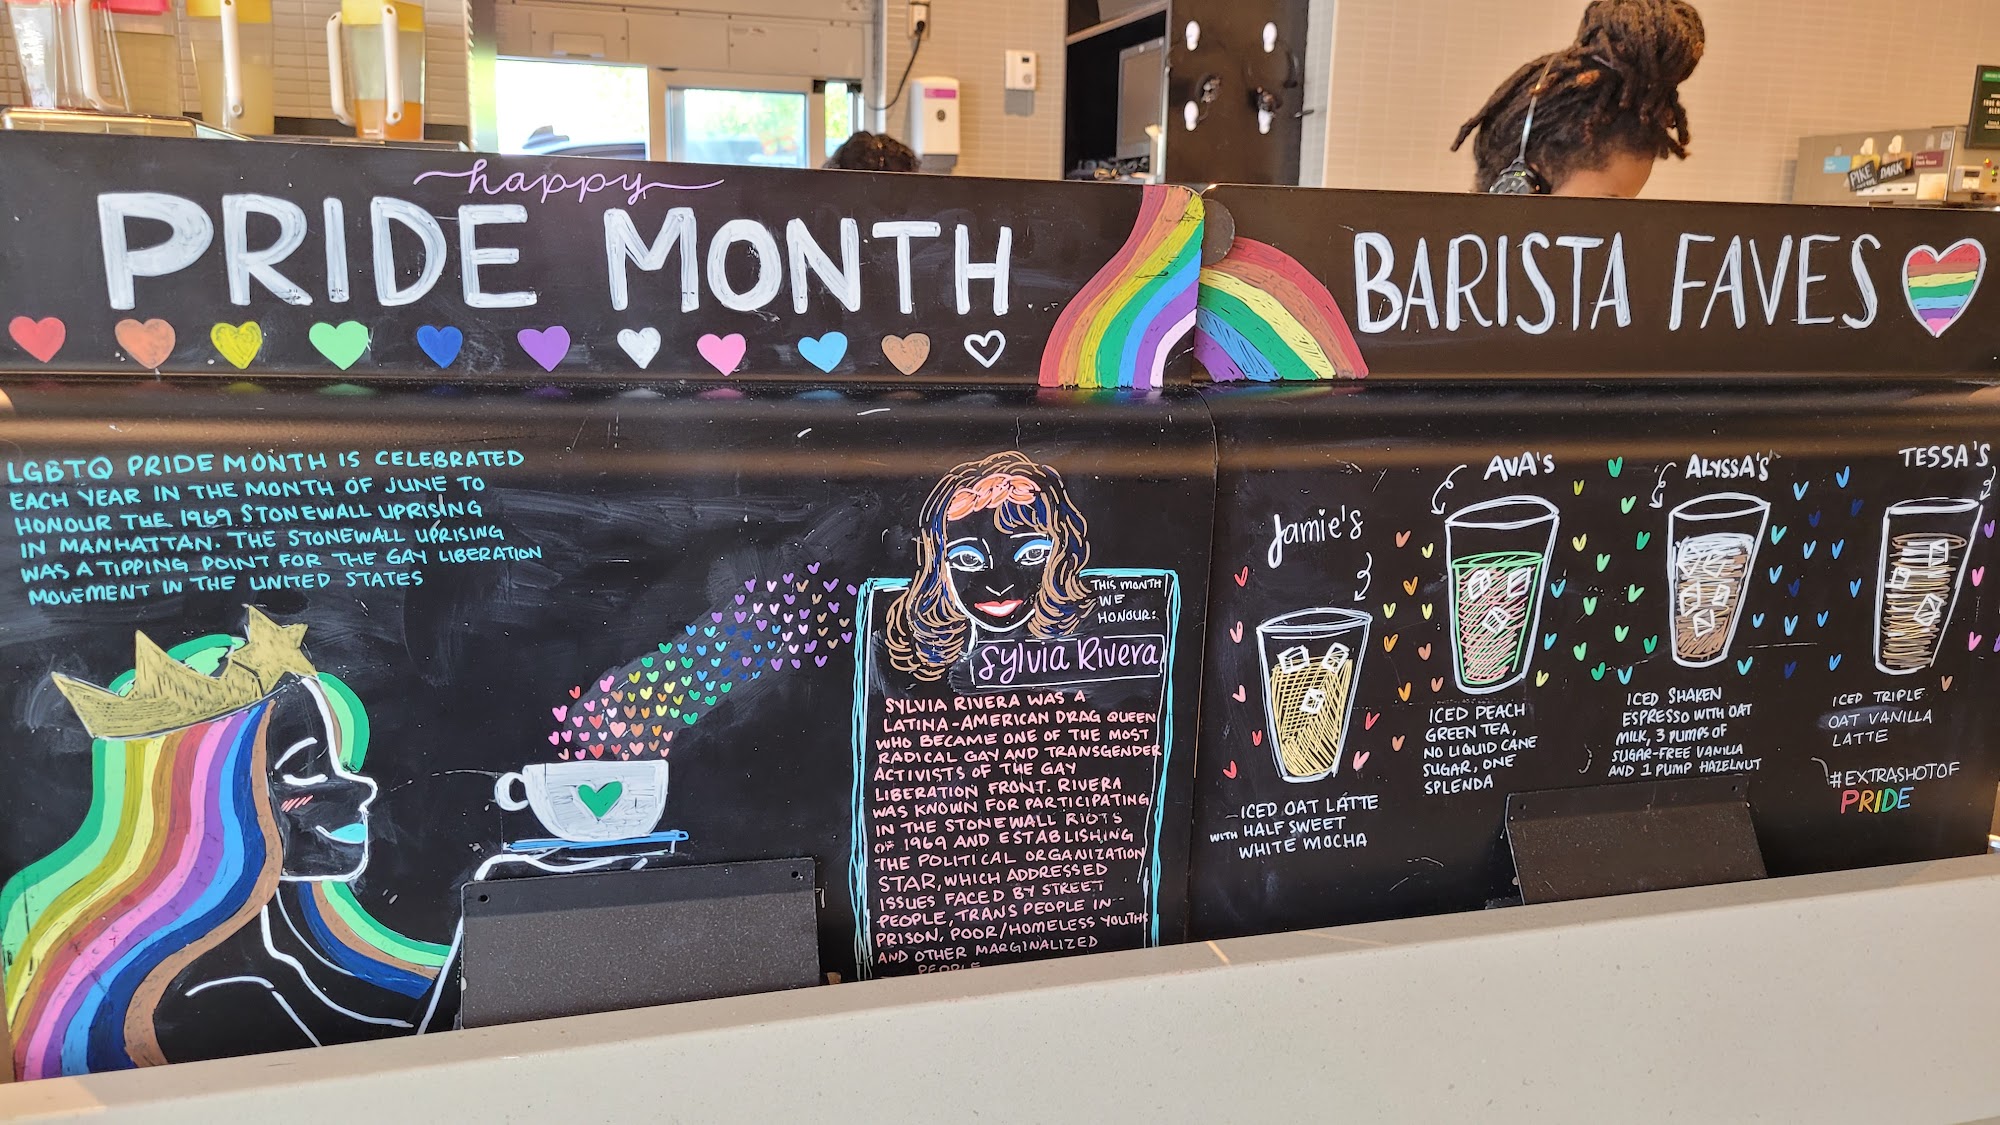 happy
PRIDE MONTH
LGBTQ PRIDE MONTH IS CELEBRATED
EACH YEAR IN THE MONTH OF JUNE TO
HONOUR THE 1969 STONEWALL UPRISING
IN MANHATTAN. THE STONEWALL UPRISING
WAS A TIPPING POINT FOR THE GAY LIBERATION
MOVEMENT IN THE UNITED STATES
THIS MONTH
WE
HONOUR:
Sylvia Rivera
SYLVIA RIVERA WAS A
LATINA-AMERICAN DRAG QUEEN
WHO BECAME ONE OF THE MOST
RADICAL GAY AND TRANSGENDER
ACTIVISTS OF THE GAY
LIBERATION FRONT. RIVERA
WAS KNOWN FOR PARTICIPATING
IN THE STONEWALL RIOTS
OF 1969 AND ESTABLISHING
THE POLITICAL ORGANIZATION
STAR, WHICH ADDRESSED
ISSUES FACED BY STREET
PEOPLE, TRANS PEOPLE IN
PRISON, POOR/HOMELESS YOUTHS
AND OTHER MARGINALIZED
PEOPLE
BARISTA FAVES
Jamie's
ICED OAT LATTE
WITH HALF SWEET
WHITE MOCHA
AVA'S
ICED PEACH
GREEN TEA,
NO LIQUID CANE
SUGAR, ONE
SPLENDA
ALYSSA'S
ICED SHAKEN
ESPRESSO WITH OAT
MILK, 3 PUMPS OF
SUGAR-FREE VANILLA
AND 1 PUMP HAZELNUT
TESSA'S
ICED TRIPLE
OAT VANILLA
LATTE
#EXTRASHOTOF
PRIDE
PIKE
DARK